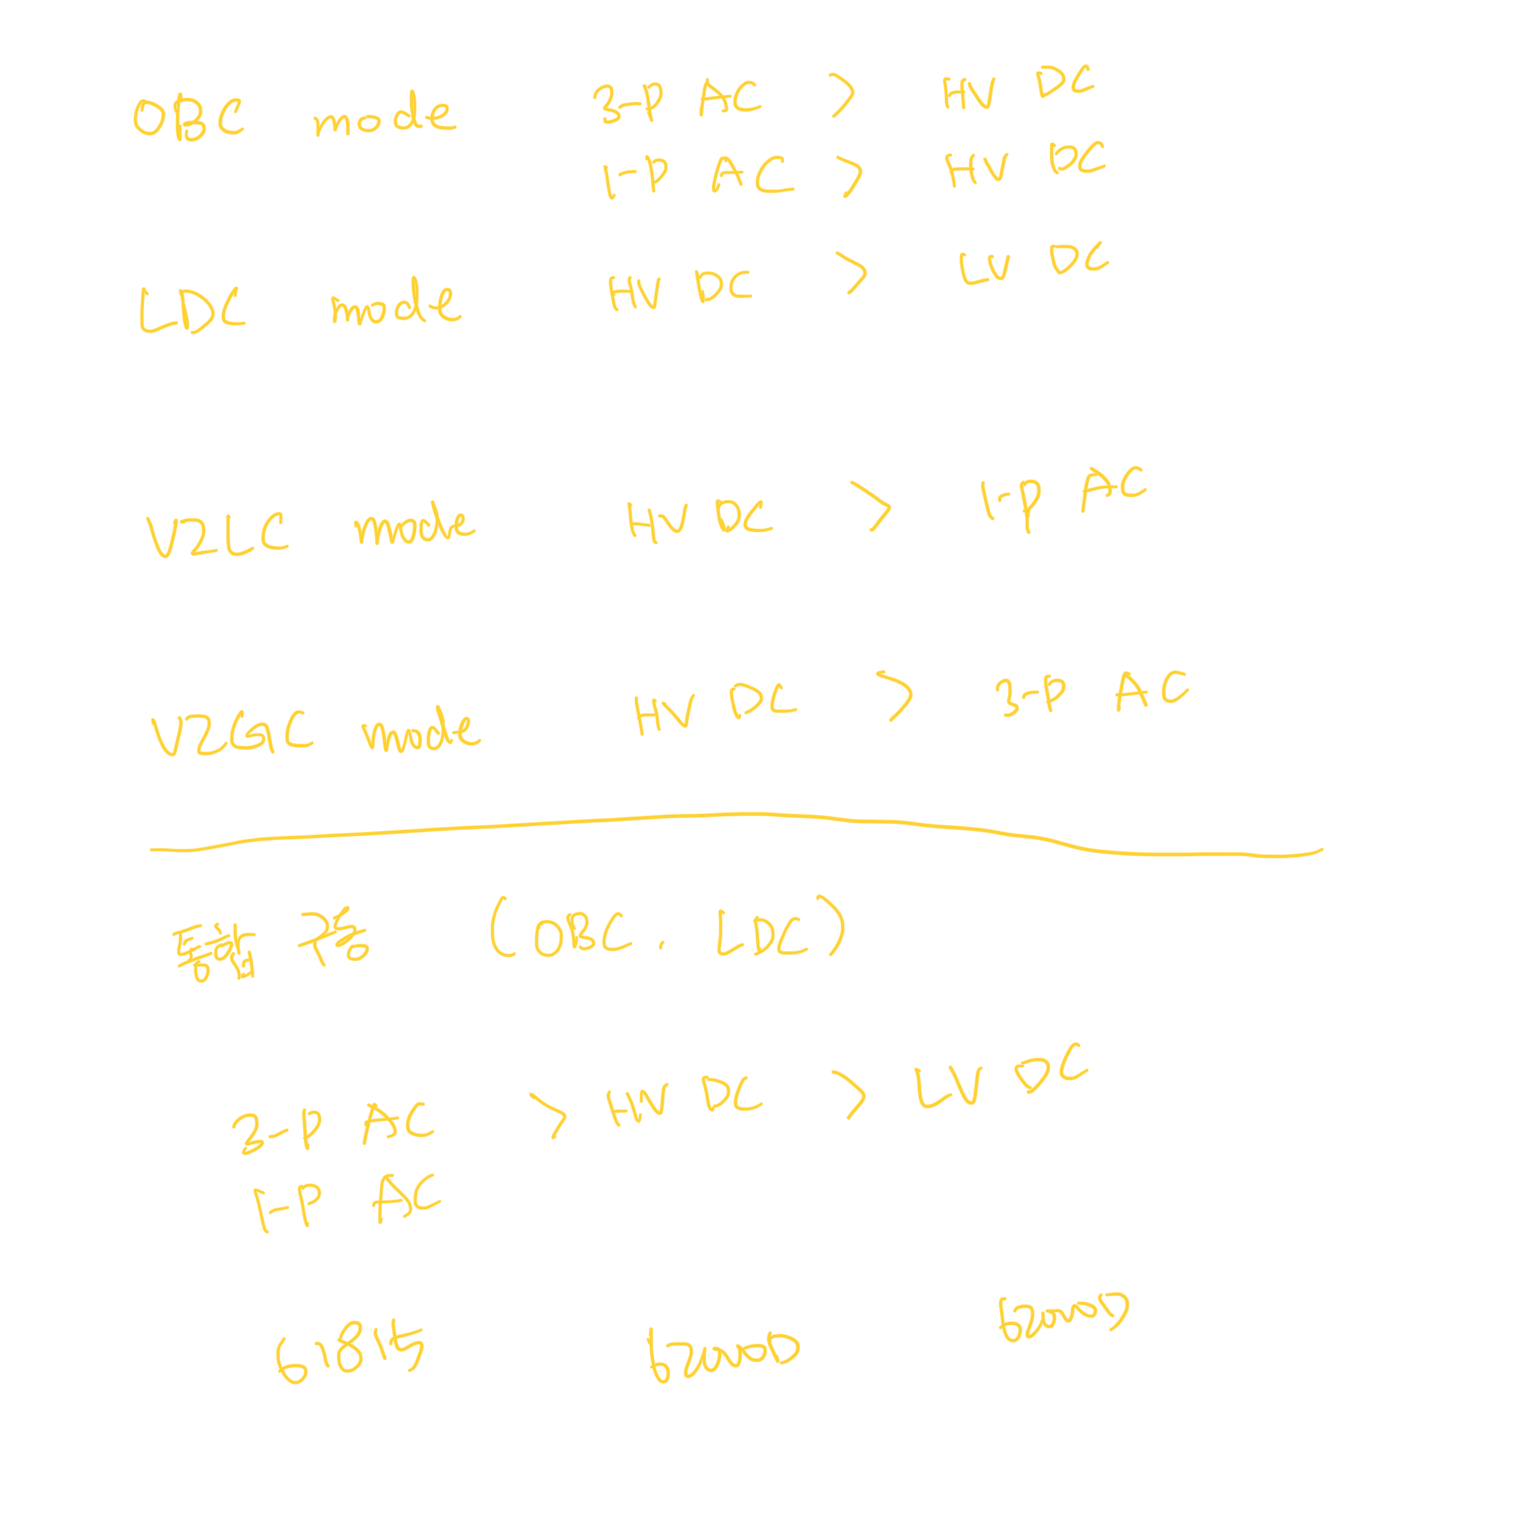 OBC mode 3-P AC > HV DC
1-P AC > HV DC
LDC mode HV DC > LV DC
V2LC mode HV DC > 1-P AC
V2GC mode HV DC > 3-P AC
통합 구동 (OBC, LDC)
3-P AC > HV DC > LV DC
1-P AC
61815 62000D 62000D